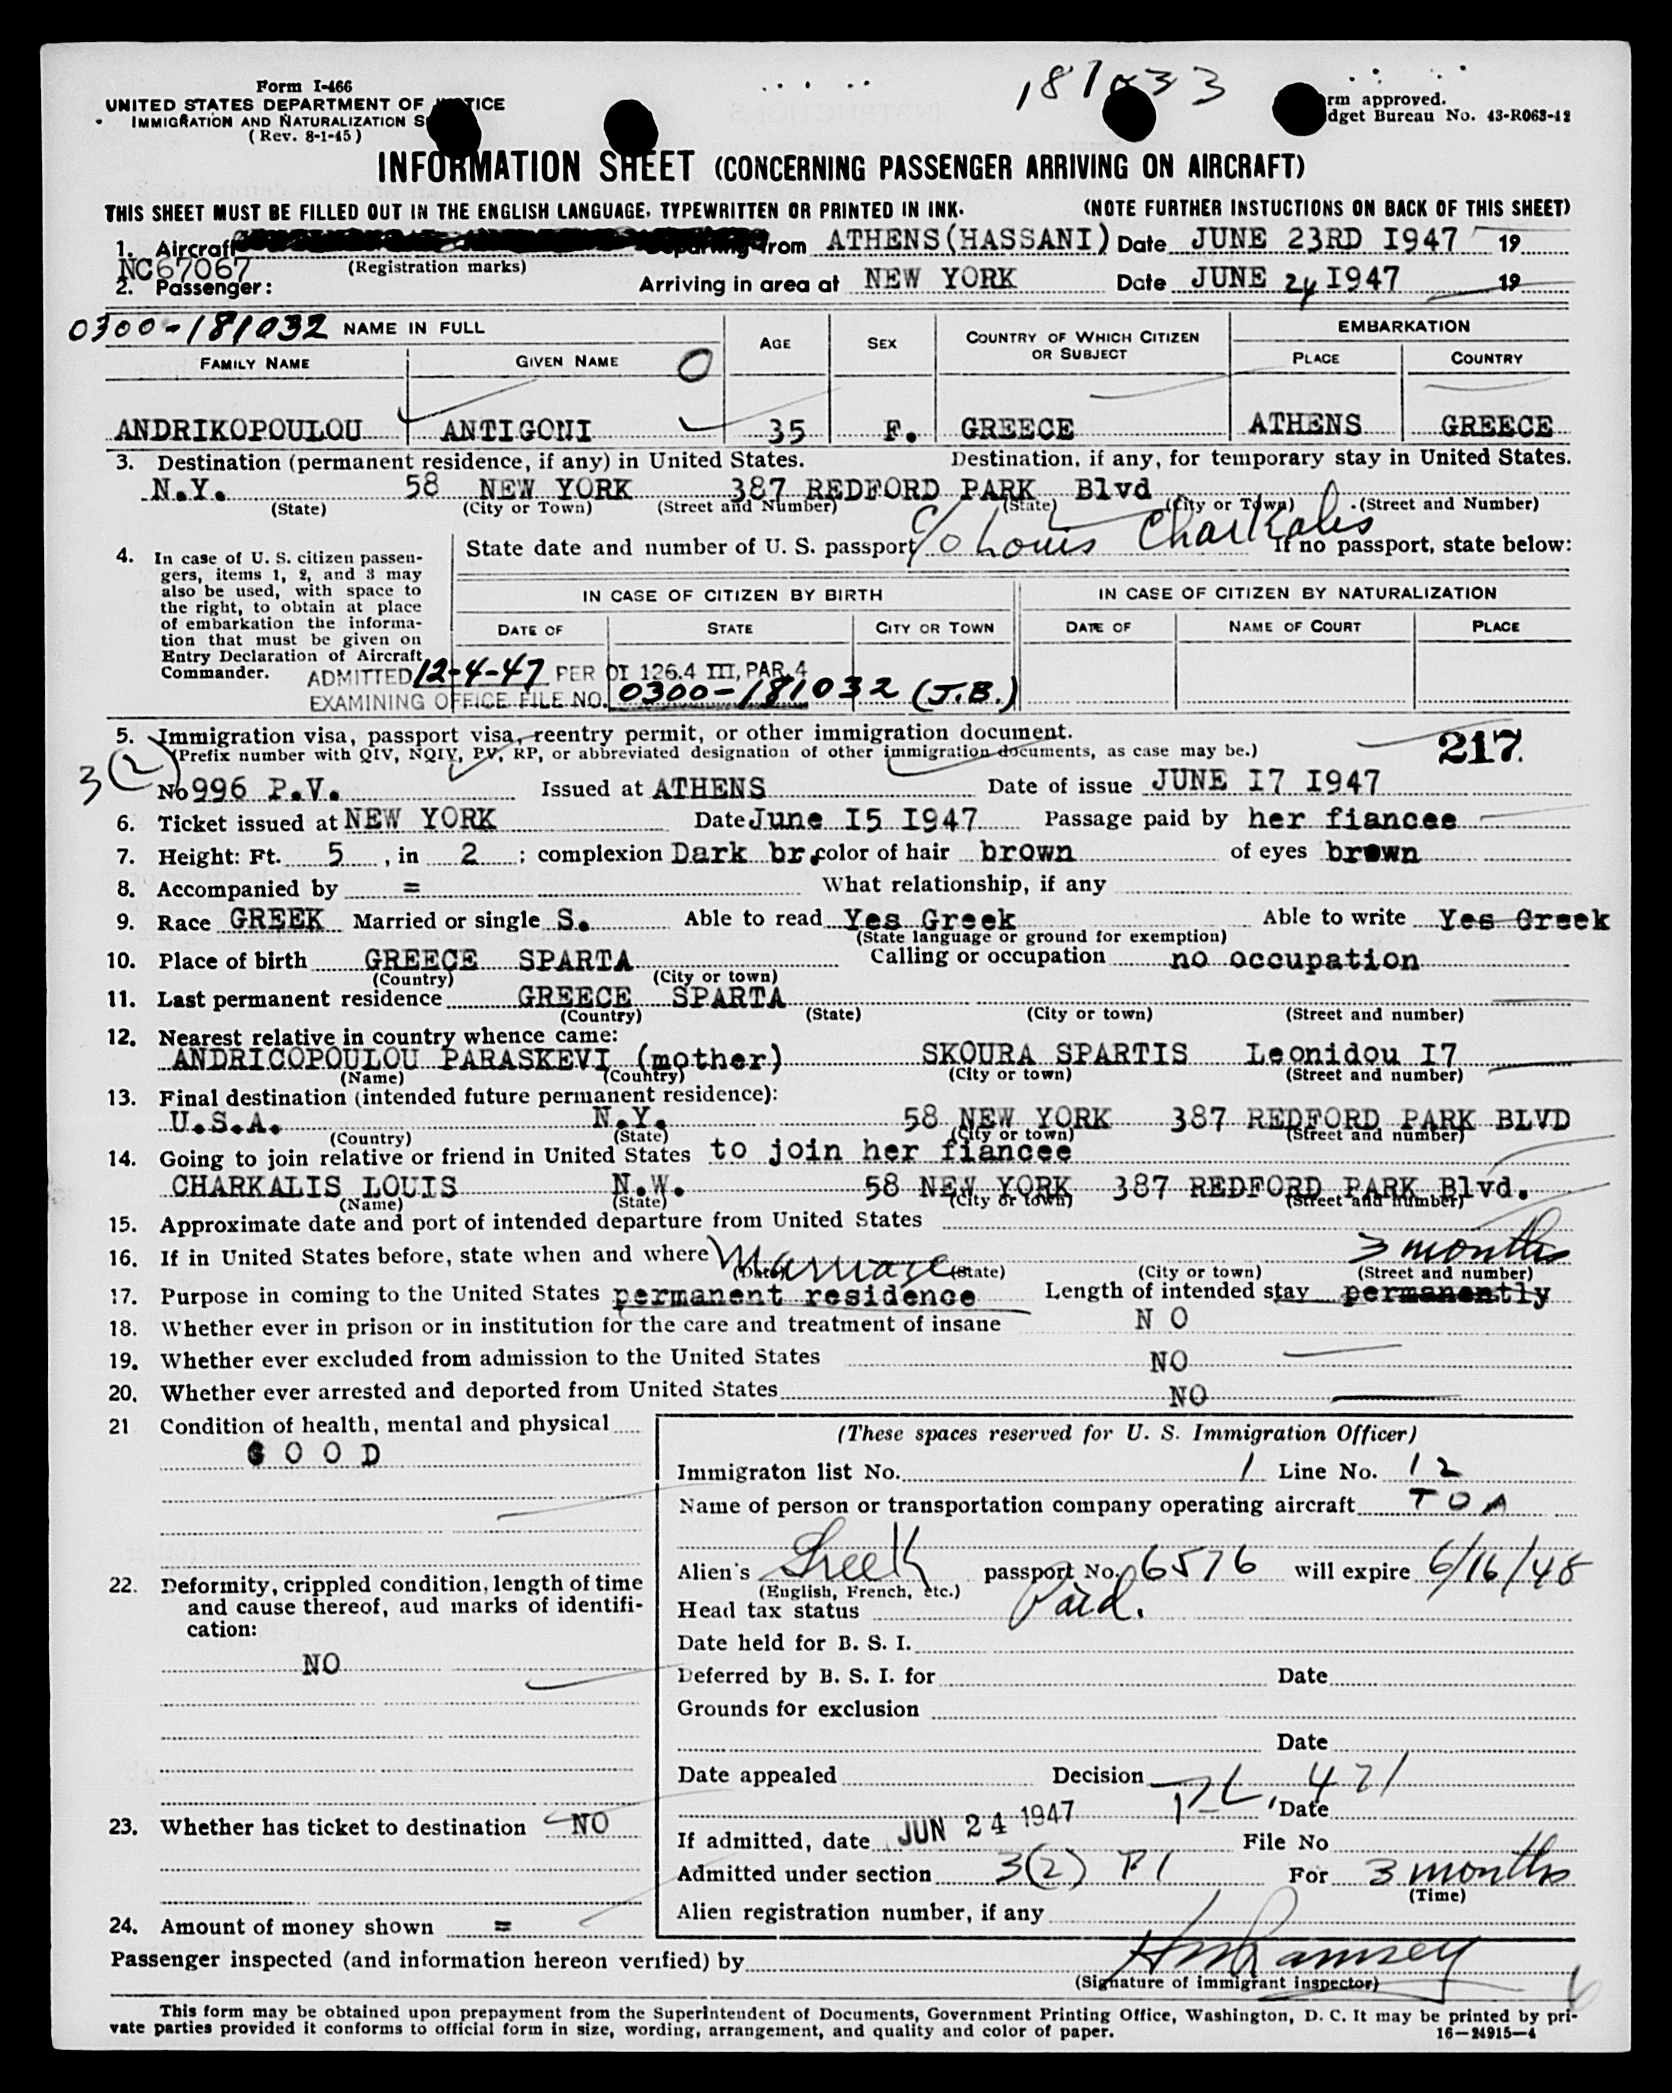 181033
Form I-466
UNITED STATES DEPARTMENT OF JUSTICE
IMMIGRATION AND NATURALIZATION S
(Rev. 8-1-45)
rm approved.
dget Bureau No. 43-R063-42
INFORMATION SHEET (CONCERNING PASSENGER ARRIVING ON AIRCRAFT)
THIS SHEET MUST BE FILLED OUT IN THE ENGLISH LANGUAGE, TYPEWRITTEN OR PRINTED IN INK. (NOTE FURTHER INSTUCTIONS ON BACK OF THIS SHEET)
1. Aircraft from ATHENS(HASSANI) Date JUNE 23RD I947 19
NC67067 (Registration marks)
2. Passenger: Arriving in area at NEW YORK Date JUNE 24 I947 19
0300-181032 NAME IN FULL AGE SEX COUNTRY OF WHICH CITIZEN OR SUBJECT EMBARKATION
FAMILY NAME GIVEN NAME PLACE COUNTRY
ANDRIKOPOULOU ANTIGONI 35 F. GREECE ATHENS GREECE
3. Destination (permanent residence, if any) in United States. Destination, if any, for temporary stay in United States.
N.Y. 58 NEW YORK 387 REDFORD PARK Blvd
(State) (City or Town) (Street and Number) (State) (City or Town) (Street and Number)
c/o Louis Charkales
4. In case of U. S. citizen passen-
gers, items 1, 2, and 3 may
also be used, with space to
the right, to obtain at place
of embarkation the informa-
tion that must be given on
Entry Declaration of Aircraft
Commander.
State date and number of U. S. passport If no passport, state below:
IN CASE OF CITIZEN BY BIRTH IN CASE OF CITIZEN BY NATURALIZATION
DATE OF STATE CITY OR TOWN DATE OF NAME OF COURT PLACE
ADMITTED 12-4-47 PER OI 126.4 III, PAR. 4
EXAMINING OFFICE FILE NO. 0300-181032 (J.B.)
5. Immigration visa, passport visa, reentry permit, or other immigration document.
(Prefix number with QIV, NQIV, PV, RP, or abbreviated designation of other immigration documents, as case may be.) 217.
3(2)
No 996 P.V. Issued at ATHENS Date of issue JUNE I7 I947
6. Ticket issued at NEW YORK Date June I5 I947 Passage paid by her fiancee
7. Height: Ft. 5, in 2; complexion Dark br. color of hair brown of eyes brown
8. Accompanied by = What relationship, if any
9. Race GREEK Married or single S. Able to read Yes Greek Able to write Yes Greek
(State language or ground for exemption)
10. Place of birth GREECE SPARTA Calling or occupation no occupation
(Country) (City or town)
11. Last permanent residence GREECE SPARTA
(Country) (State) (City or town) (Street and number)
12. Nearest relative in country whence came:
ANDRICOPOULOU PARASKEVI (mother) SKOURA SPARTIS Leonidou I7
(Name) (Country) (City or town) (Street and number)
13. Final destination (intended future permanent residence):
U.S.A. N.Y. 58 NEW YORK 387 REDFORD PARK BLVD
(Country) (State) (City or town) (Street and number)
14. Going to join relative or friend in United States to join her fiancee
CHARKALIS LOUIS N.W. 58 NEW YORK 387 REDFORD PARK Blvd.
(Name) (State) (City or town) (Street and number)
15. Approximate date and port of intended departure from United States
16. If in United States before, state when and where Marriage 3 months
(Date) (State) (City or town) (Street and number)
17. Purpose in coming to the United States permanent residence Length of intended stay permanently
18. Whether ever in prison or in institution for the care and treatment of insane N O
19. Whether ever excluded from admission to the United States NO
20. Whether ever arrested and deported from United States NO
21 Condition of health, mental and physical
G O O D
22. Deformity, crippled condition, length of time
and cause thereof, aud marks of identifi-
cation:
NO
23. Whether has ticket to destination NO
24. Amount of money shown =
(These spaces reserved for U. S. Immigration Officer)
Immigraton list No. 1 Line No. 12
Name of person or transportation company operating aircraft TOA
Alien's Greek passport No. 6576 will expire 6/16/48
(English, French, etc.)
Head tax status Paid.
Date held for B. S. I.
Deferred by B. S. I. for Date
Grounds for exclusion
Date
Date appealed Decision
Date
If admitted, date JUN 24 1947 File No
Admitted under section 3(2) P1 For 3 months
(Time)
Alien registration number, if any
Passenger inspected (and information hereon verified) by HM Ramsey
(Signature of immigrant inspector)
This form may be obtained upon prepayment from the Superintendent of Documents, Government Printing Office, Washington, D. C. It may be printed by pri-
vate parties provided it conforms to official form in size, wording, arrangement, and quality and color of paper. 16—24915-4